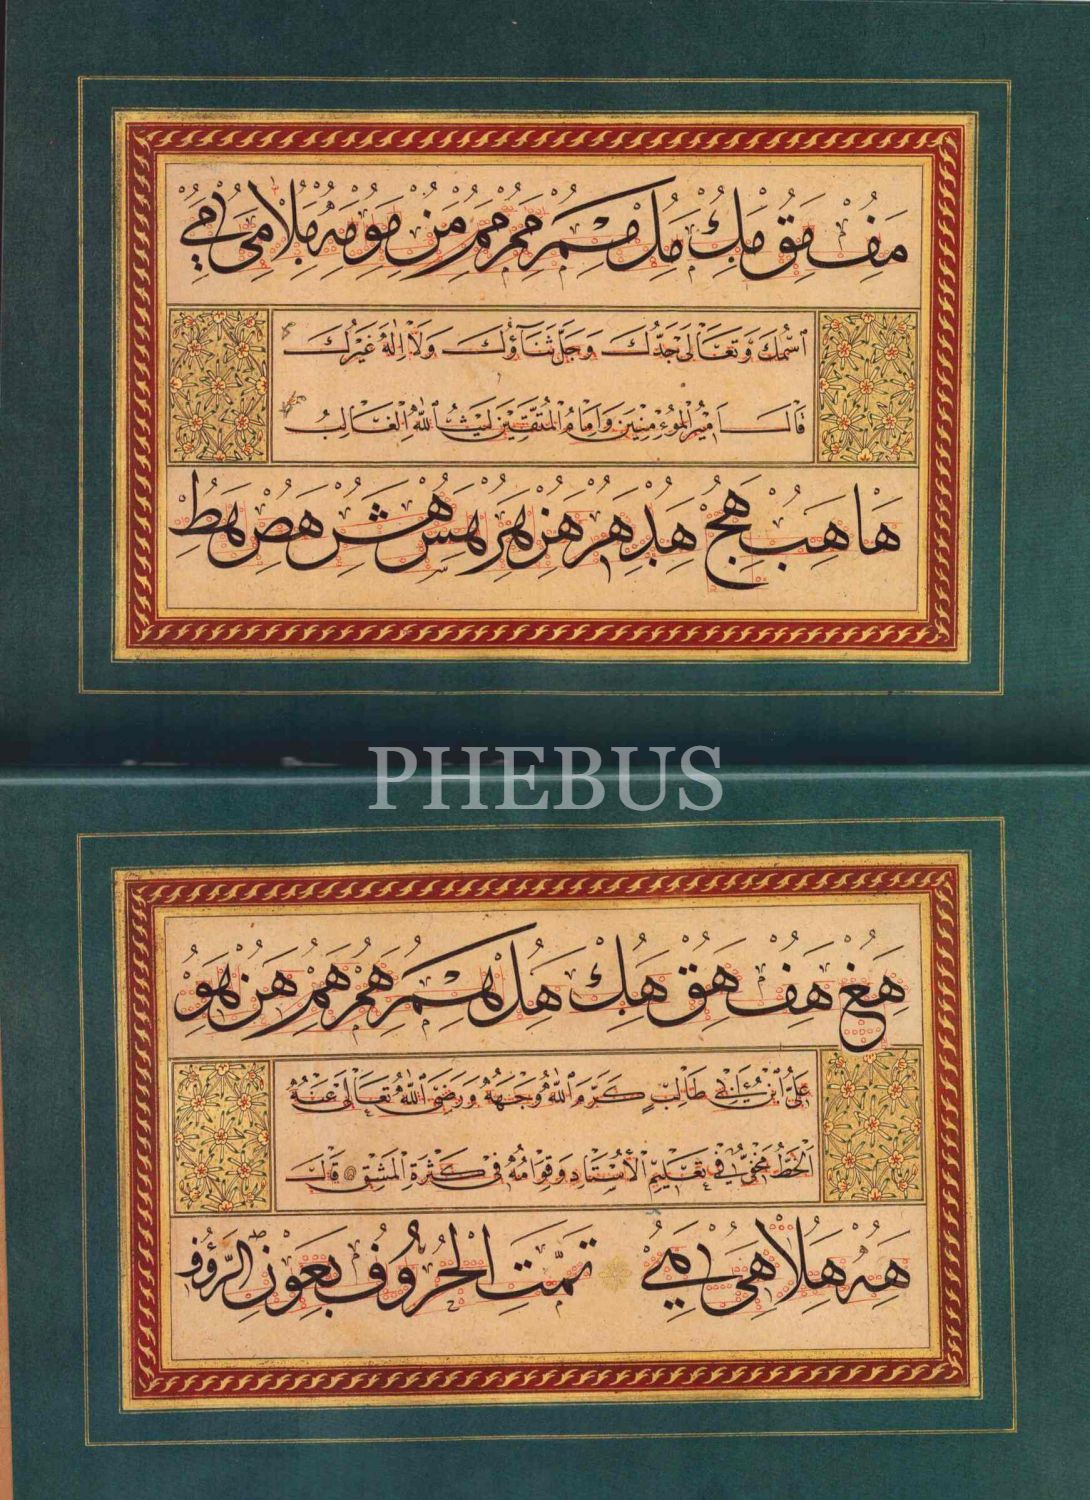 مف مق مك مل مم مر مم مر من مو مه ملا مى مي
اسمك وتعالى جدك وجل ثناؤك ولا اله غيرك
قال امير المؤمنين وامام المتقين ليث الله الغالب
ها هب هج هد هر هز هس هش هص هط
PHEBUS
هغ هف هق هك هل هم هم هم هن هو
علي ابن ابي طالب كرم الله وجهه ورضى الله تعالى عنه
الخط مخفي في تعليم الاستاد وقوامه في كثرة المشق قال
هه هلا هى هي تمت الحروف بعون الرؤف